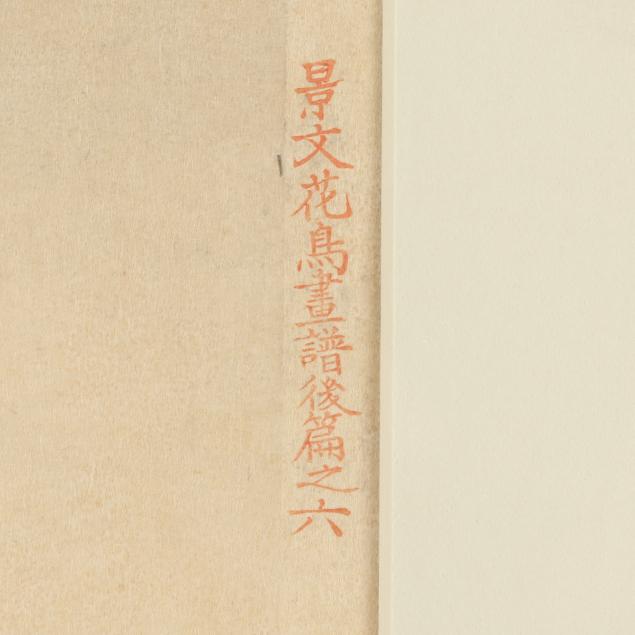 景文花鳥畫譜後篇之六